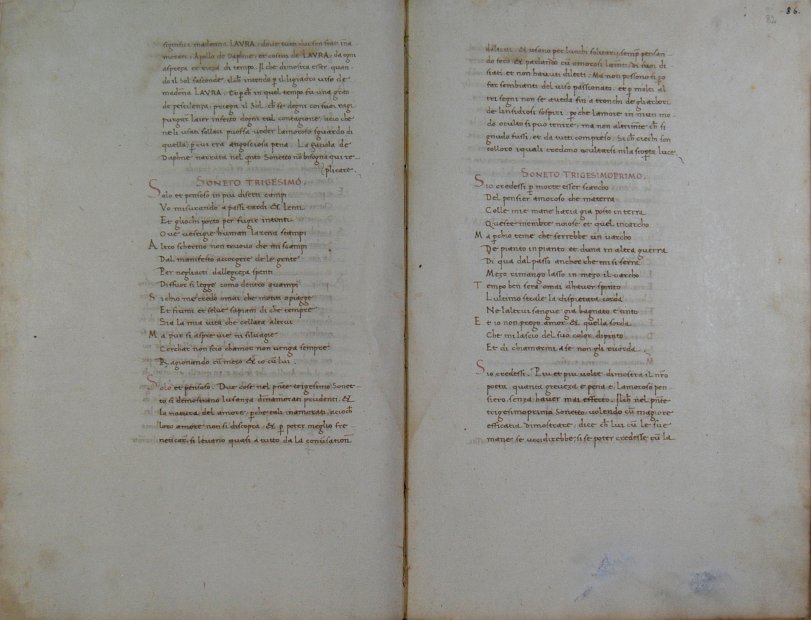 significi madonna LAVRA, doue
Apollo de Daphne, et costui de LAVRA, da ogni
aspreza et rieza di tempo. Il che dimostra esser, quan
do il Sol sasconde, cioè intende p il ligiadro uiso de
madona LAVRA; Et in quel tempo fu una
de pestilenza; priega il Sol, ch se degni coi suoi ragi
purgar laier infecto dogni tal contagione; acio che
ne li usati sollaci possa ueder lamoroso sguardo di
quella; p cui era angosciosa pena. La fauola de
Daphne narrata nel qnto Sonetto nō bisogna qui re
plicare.
SONETO TRIGESIMO.
Solo et pensoso in piu diserti campi
Vo misurando a passi tardi & lenti
Et gliochi porto per fugire intenti
Oue uestigie human larena stampi
Altro schermo non trouo che mi scampi
Dal manifesto accorger de le gente
Per negliacti dallegreza spenti
Di fuor si legge como dentro auampi
Si chio me credo omai che monti et piagge
Et fiumi et selue sapian di che tempre
Sia la mia uita che cellata altrui
Ma pur si aspre uie ne si siluagie
Cerchar non scio chamor non uenga sempre
Ragionando cū meco & io cū lui.
Solo et pensoso. Due cose nel pñte trigesimo Sonet
to si demostrano lusanza dinamorati prudenti, &
la natura del amore; pche tali inamorati, acioch
loro amore non si discopra, & p poter meglio fre
neticar, si leuano quasi a tutto da la conuersation
86.
82
daltrui. Et usano per luochi solitarij sempre pensan
do seco & parlando cū amorosi lamenti di suoi di
siati et non hauuti diletti. Ma non possono si po
far sembianti del uiso passionato, et p molti al
tri segni non se aueda fin a tronchi de gliarbori
de linsidiosi sospiri; poche lamore in niun mo
do oculto si puo tenire; ma non altrimte ch si
gnudo fussi, et da tutti compreso. Si ch ciechi son
colloro iquali credono ocultarsi nila scoperta luce.
SONETO TRIGESIMOPRIMO.
Sio credesse p morte esser scarcho
Del pensier amoroso che materra
Colle mie mane haria gia posto in terra
Queste membre noiose et quel incarcho
Ma pchio teme che serrebbe un uarcho
De pianto in pianto et duna in altra guerra
Di qua dal passo anchor che mi si serra
Mezo rimango lasso in mezo il uarcho
Tempo ben sera omai dhauer spinto
Lultimo strale la dispietata corda
Ne laltrui sangue gia bagnato et tinto
Et io non prego amor & quella sorda
Che mi lascio del suo color dipinto
Et di chiamarmi a se non gli ricorda.
Sio credesse. Piu et piu uolte dimostra il nro
poeta quanta greueza e pena e lamoroso pen
siero, senza hauer mai effecto. Ilch nel pñte
trigesimoprimo Sonetto, uolendo cū magiore
efficatia dimostrare, dice ch lui cū le sue
mane se uccidirebbe, si se poter credesse cū la